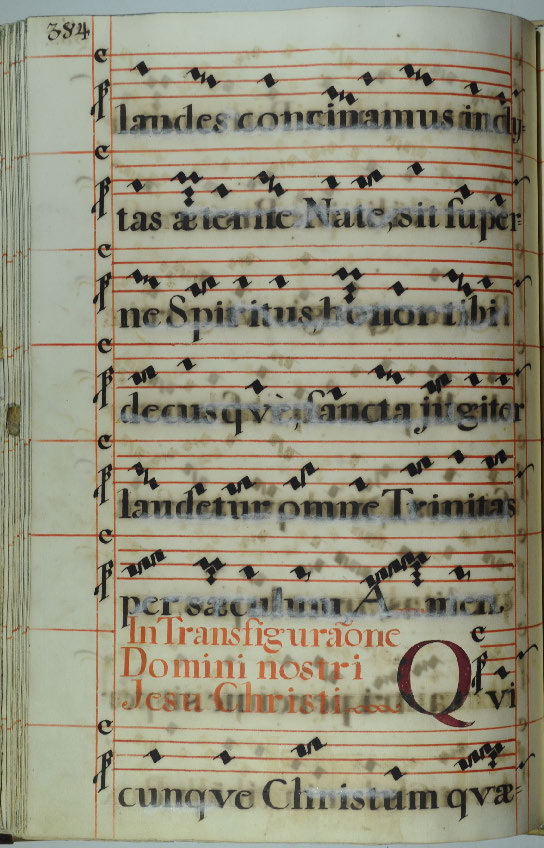 384
laudes concinamus indy-
tas æterne Nate, sit supèr-
ne Spiritus, honor tibi
decusqvè, sancta jugiter
laudetur omne Trinitas
per sæculum A-men.
In Transfiguraõne
Domini nostri
Jesu Christi
Qvi
cunqve Christum qvæ-